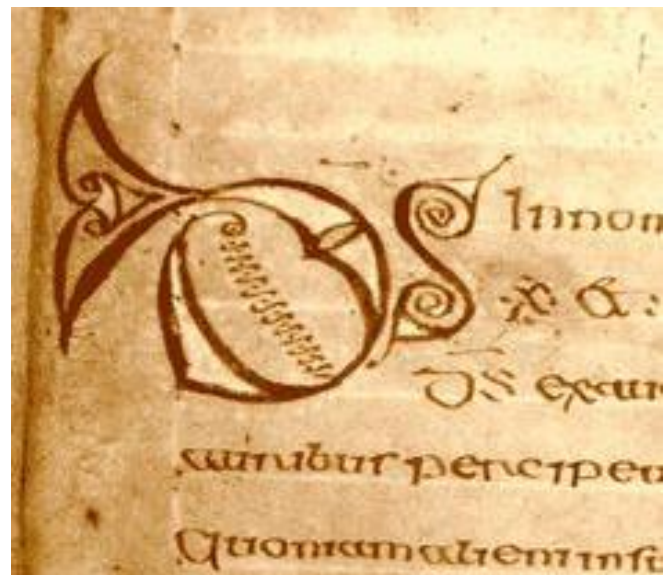 DS Innom
& :
DS exau
auribus percipe u
Quoniam alieni insu